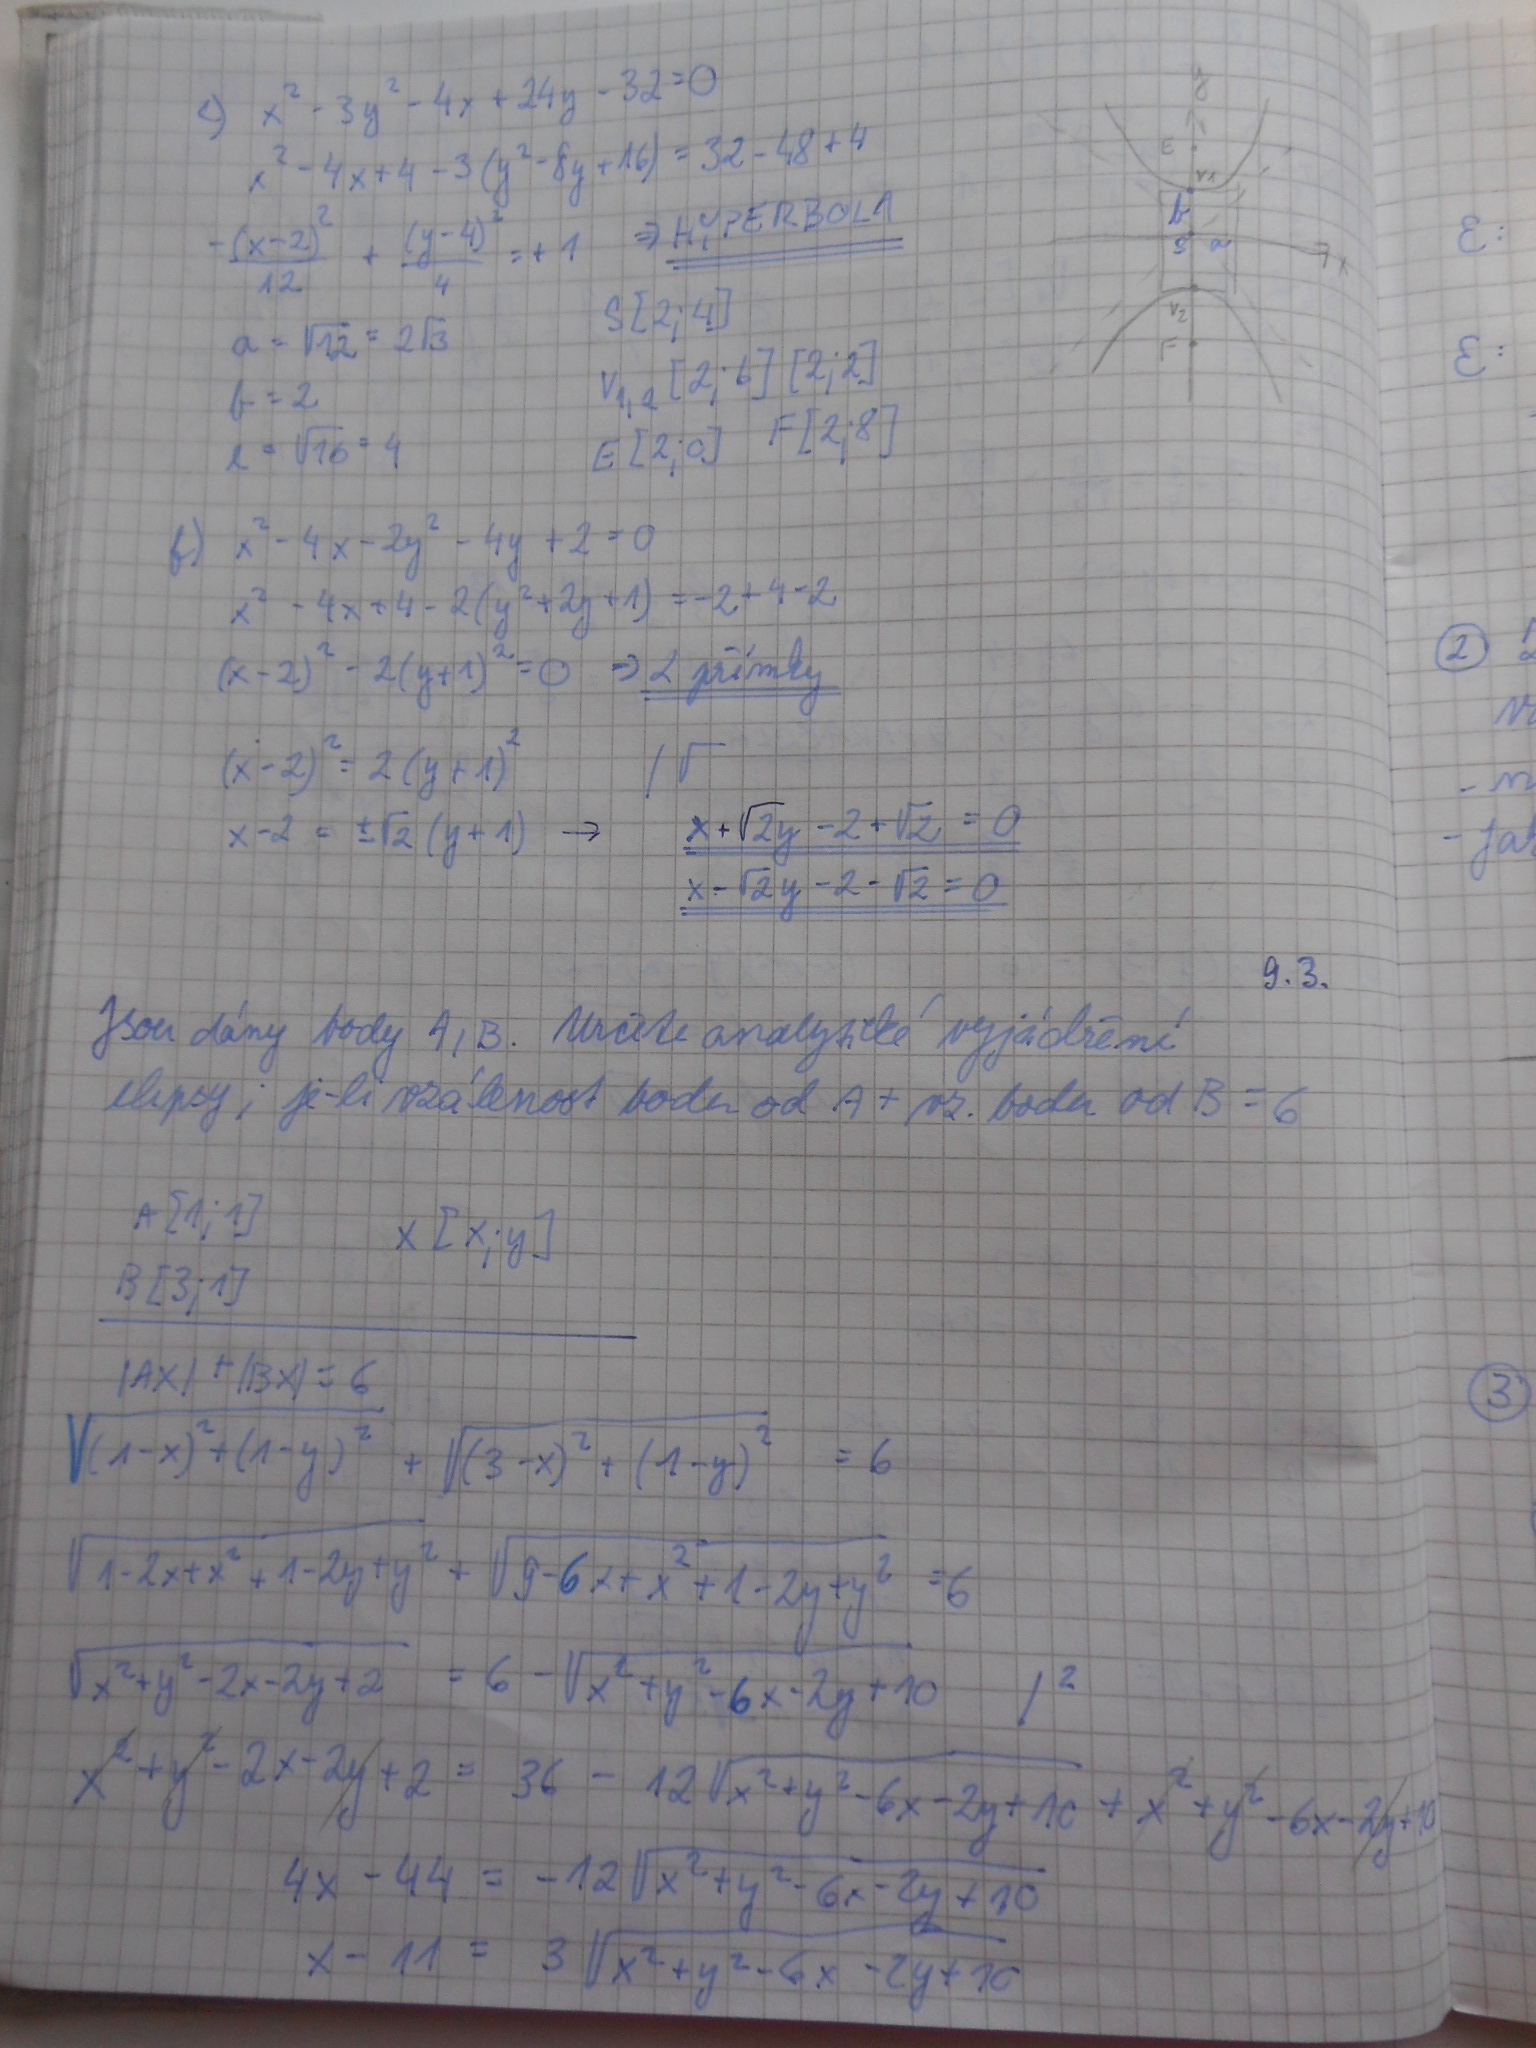 c) x² - 3y² - 4x + 24y - 32 = 0
x² - 4x + 4 - 3(y² - 8y + 16) = 32 - 48 + 4
-(x-2)²/12 + (y-4)²/4 = +1 ⇒ HYPERBOLA
a = √12 = 2√3
S[2;4]
b = 2
V₁,₂ [2;6] [2;2]
e = √16 = 4
E[2;0] F[2;8]
y
E
V₁
b
S a
x
V₂
F
f) x² - 4x - 2y² - 4y + 2 = 0
x² - 4x + 4 - 2(y² + 2y + 1) = -2 + 4 - 2
(x-2)² - 2(y+1)² = 0 ⇒ 2 přímky
(x-2)² = 2(y+1)² /√
x - 2 = ±√2 (y+1) → x + √2y - 2 + √2 = 0
x - √2y - 2 - √2 = 0
9.3.
Jsou dány body A, B. Určete analytické vyjádření
elipsy, je-li vzálenost bodu od A + vz. bodu od B = 6
A[1;1]
X[x;y]
B[3;1]
|AX| + |BX| = 6
√(1-x)² + (1-y)² + √(3-x)² + (1-y)² = 6
√1-2x+x²+1-2y+y² + √9-6x+x²+1-2y+y² = 6
√x²+y²-2x-2y+2 = 6 - √x²+y²-6x-2y+10 /²
x²+y²-2x-2y+2 = 36 - 12√x²+y²-6x-2y+10 + x²+y²-6x-2y+10
4x - 44 = -12√x²+y²-6x-2y+10
x - 11 = 3√x²+y²-6x-2y+10
ε:
ε:
2
3